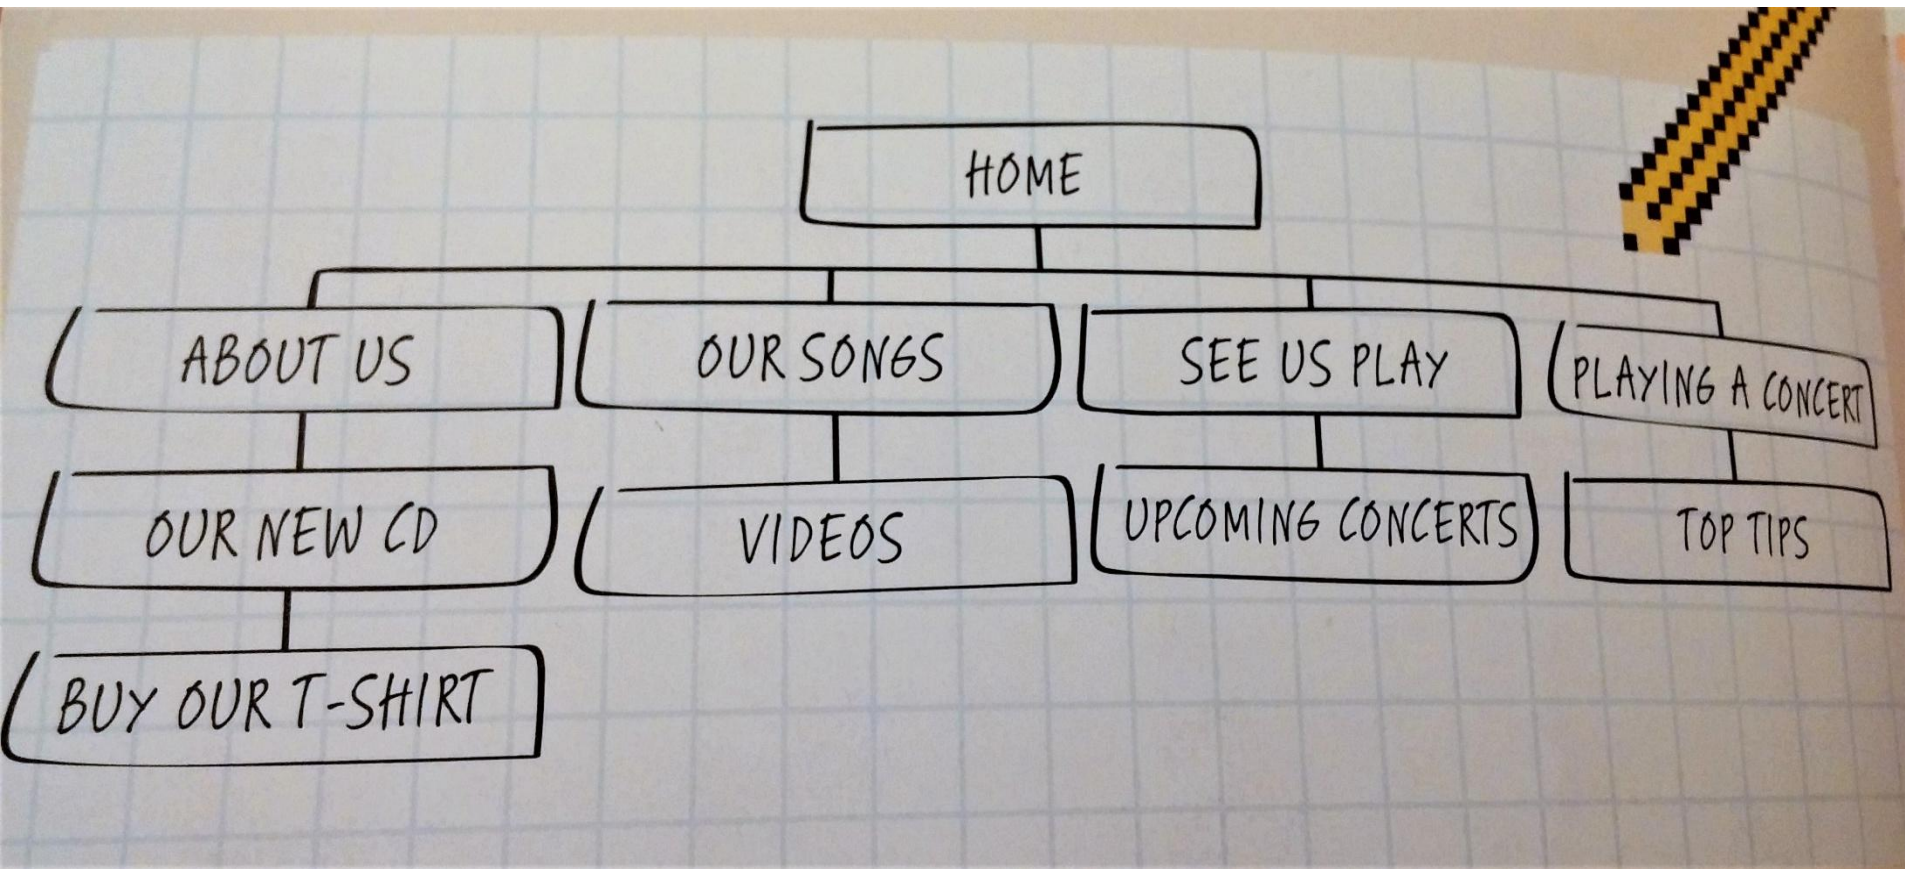 HOME
ABOUT US
OUR SONGS
SEE US PLAY
PLAYING A CONCERT
OUR NEW CD
VIDEOS
UPCOMING CONCERTS
TOP TIPS
BUY OUR T-SHIRT